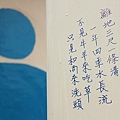 離地三尺一條溝
一年四季水長流
不見牛羊來吃草
只見和尚來洗頭